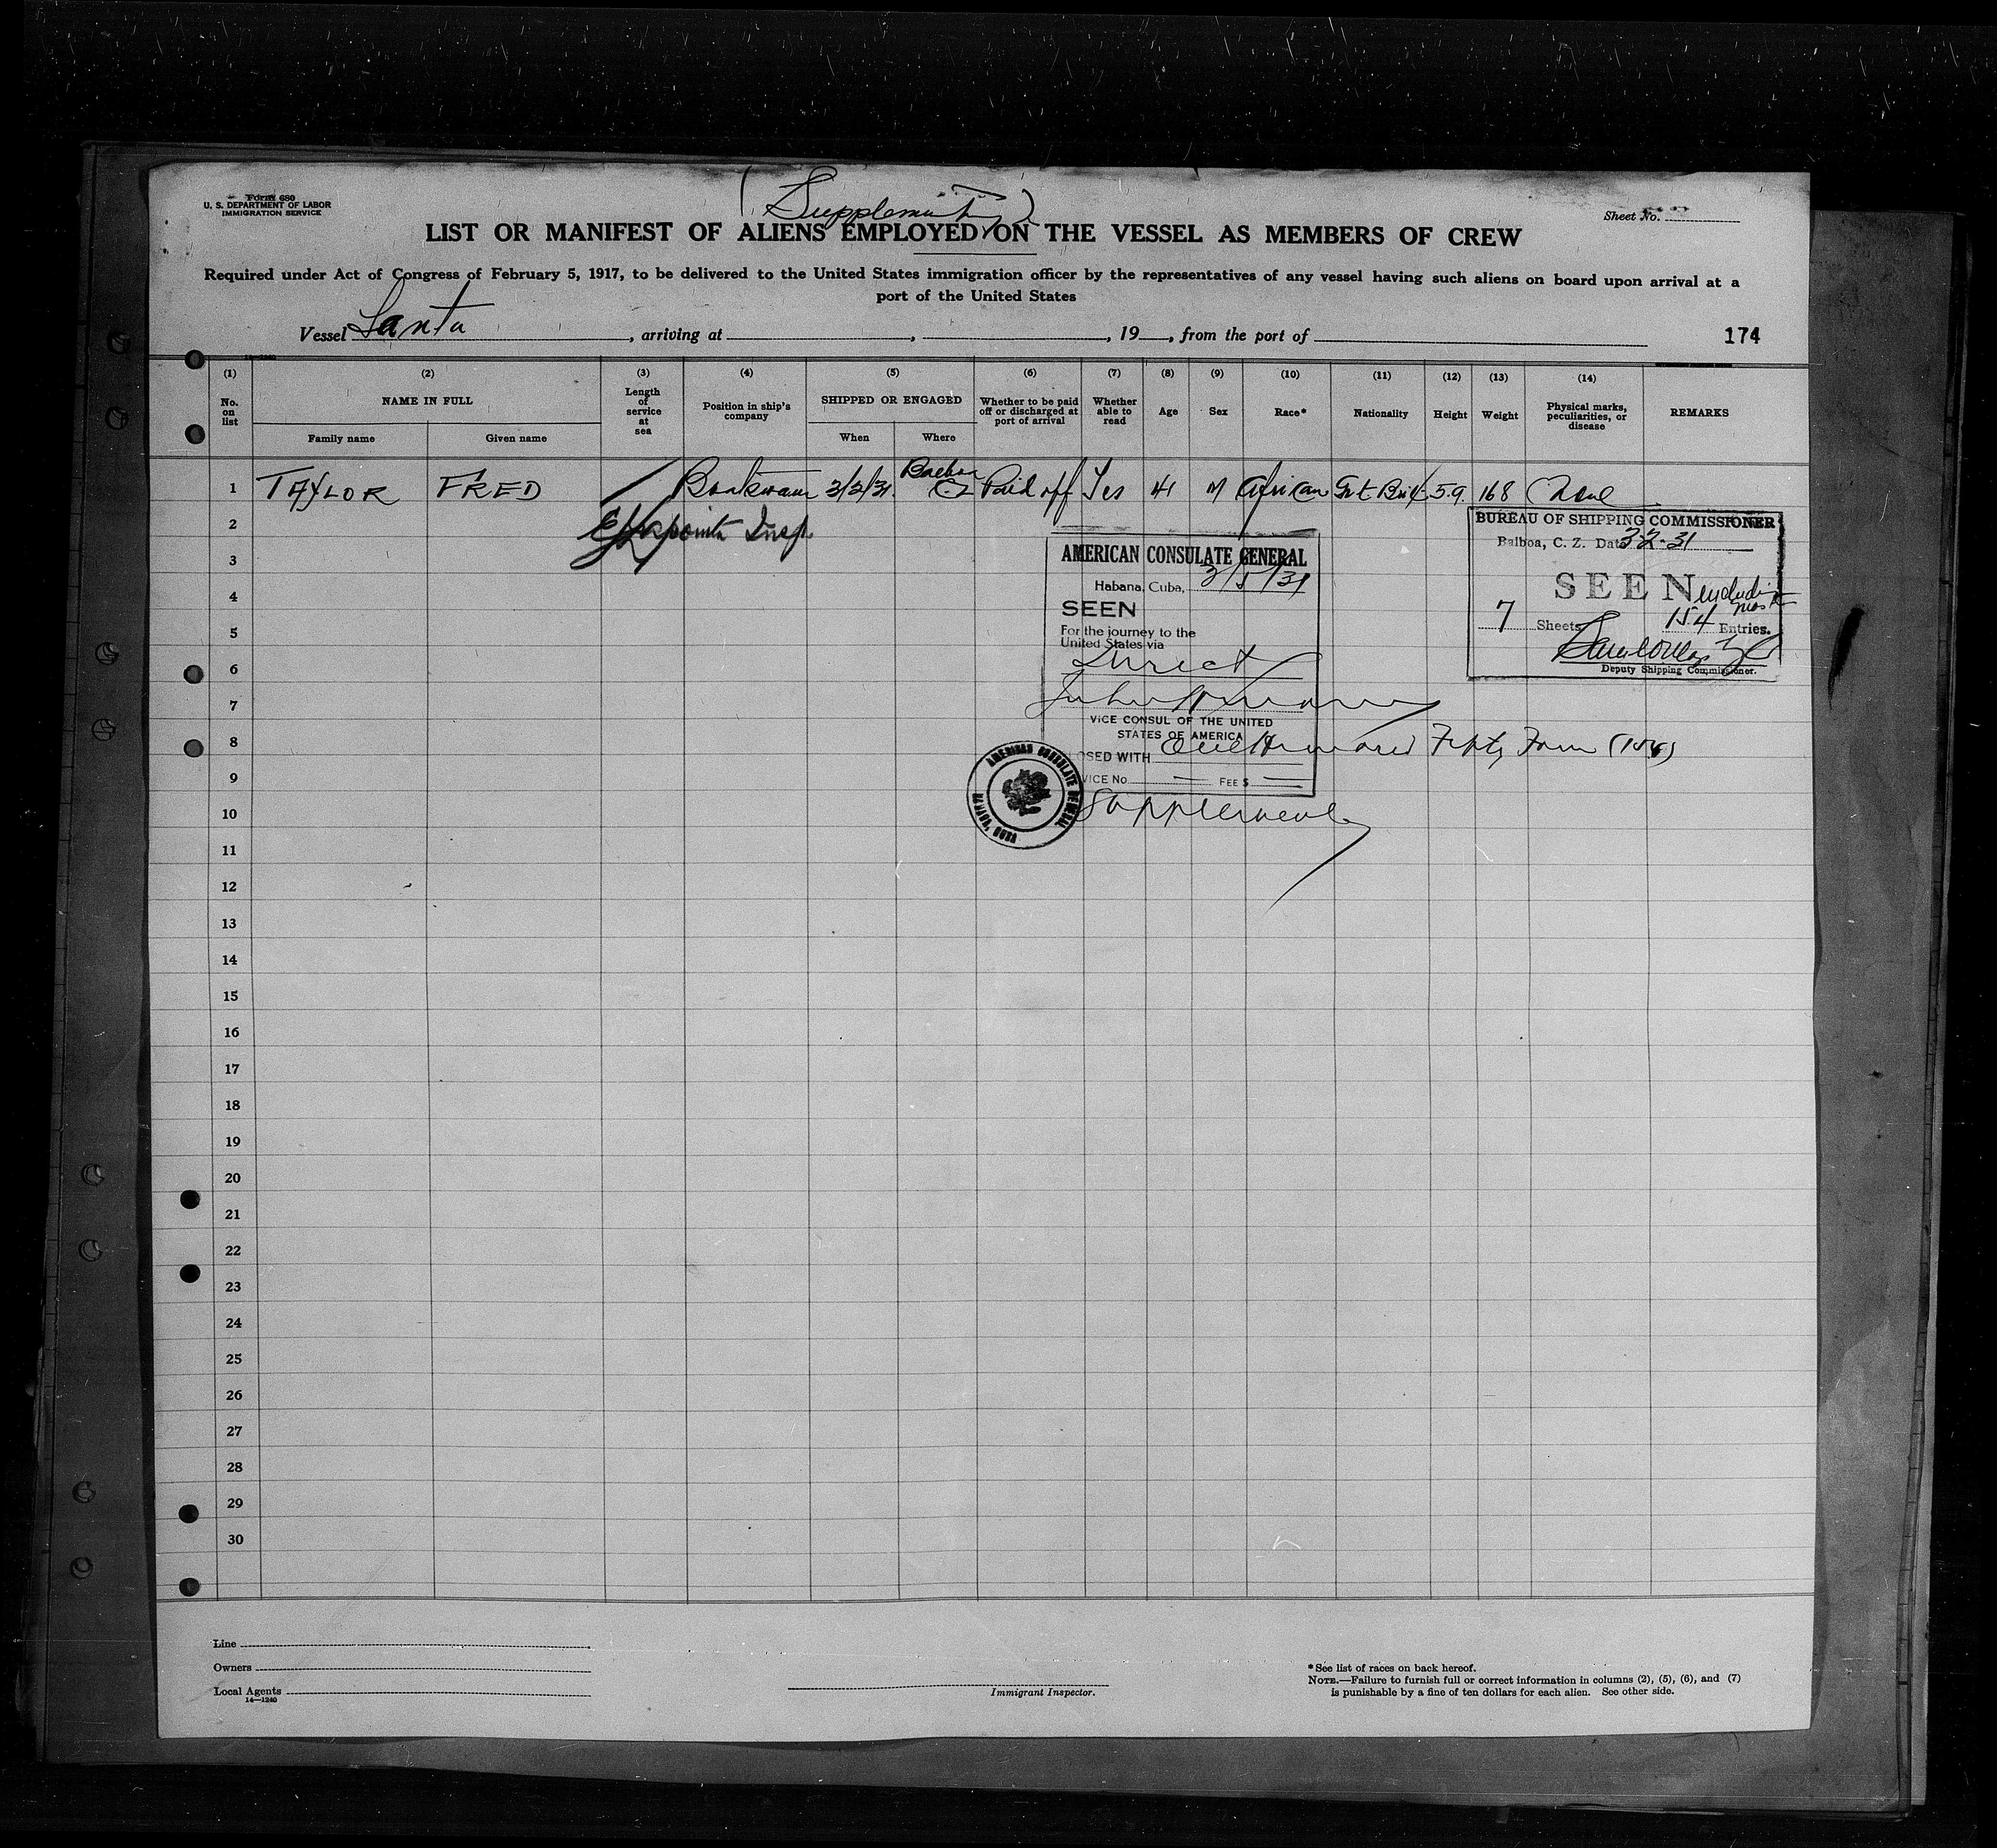 Form 680
U. S. DEPARTMENT OF LABOR
IMMIGRATION SERVICE
(Supplementary)
Sheet No.
LIST OR MANIFEST OF ALIENS EMPLOYED ON THE VESSEL AS MEMBERS OF CREW
Required under Act of Congress of February 5, 1917, to be delivered to the United States immigration officer by the representatives of any vessel having such aliens on board upon arrival at a
port of the United States
Vessel Santa , arriving at , , 19 , from the port of
174
14—1240
(1) (2) (3) (4) (5) (6) (7) (8) (9) (10) (11) (12) (13) (14)
No. on list
NAME IN FULL
Family name Given name
Length of service at sea
Position in ship's company
SHIPPED OR ENGAGED
When Where
Whether to be paid off or discharged at port of arrival
Whether able to read
Age Sex Race* Nationality Height Weight
Physical marks, peculiarities, or disease
REMARKS
1 TAYLOR FRED 3/2/31 Balboa CZ Paid off Yes 41 M African Gt. Brit 5.9. 168 None
2
3
4
5
6
7
8
9
10
11
12
13
14
15
16
17
18
19
20
21
22
23
24
25
26
27
28
29
30
AMERICAN CONSULATE GENERAL
Habana, Cuba, 3/5/31
SEEN
For the journey to the
United States via
Direct
VICE CONSUL OF THE UNITED
STATES OF AMERICA
OSED WITH One Hundred Fifty Four (154)
VICE No. FEE $
Supplement
AMERICAN CONSULATE GENERAL
HABANA, CUBA
BUREAU OF SHIPPING COMMISSIONER
Balboa, C. Z. Date 3-2-31
SEEN including
7 Sheets 154 Entries.
Deputy Shipping Commissioner.
Line
Owners
Local Agents
14—1240
Immigrant Inspector.
*See list of races on back hereof.
NOTE.—Failure to furnish full or correct information in columns (2), (5), (6), and (7)
is punishable by a fine of ten dollars for each alien. See other side.